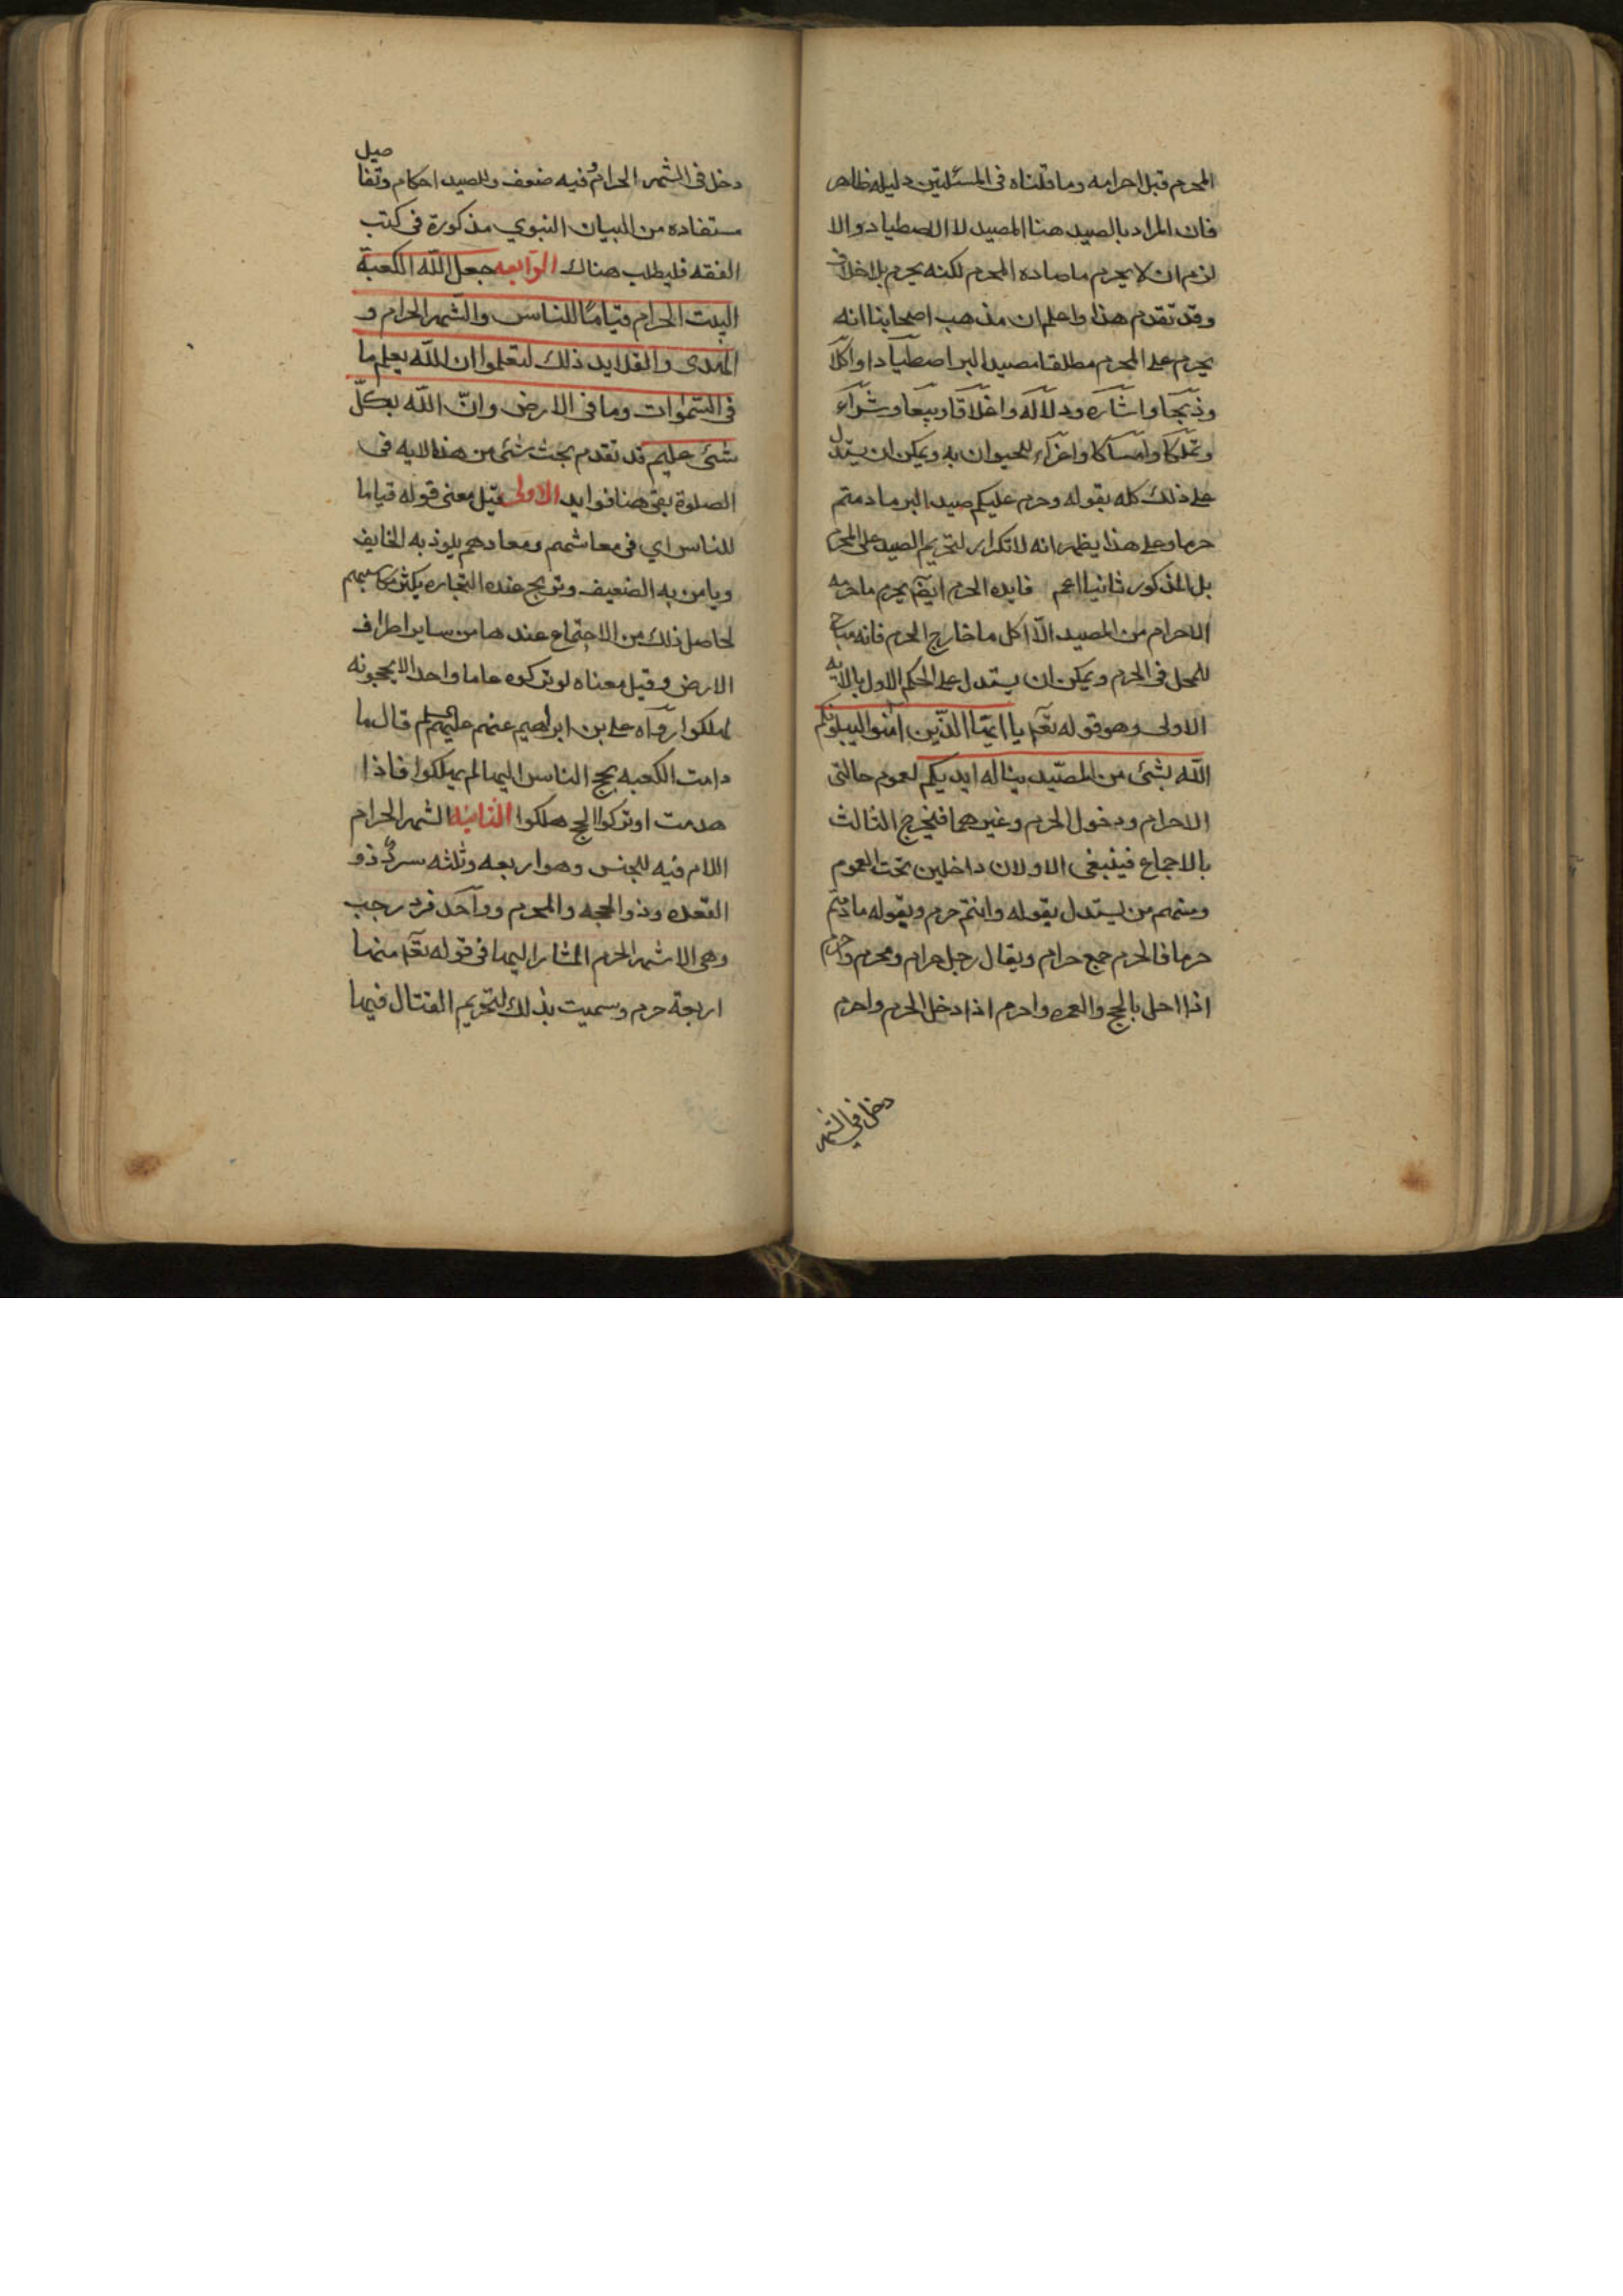 المحرم قبل احرامه وما قلناه فى المسئلتين دليله ظاهر
فان المراد بالصيد هنا المصيد لا الاصطياد والا
لزم ان لا يحرم ما صاده المحرم لكنه يحرم بلا خلاف
وقد تقدم هذا واعلم ان مذهب اصحابنا انه
يحرم على المحرم مطلقا مصيد البر اصطيادا واكلا
وذبحا واشاره ودلاله واغلاقا وبيعا وشراء
وتملكا وامساكا واغراء للحيوان به ويمكن ان يستدل
على ذلك كله بقوله وحرم عليكم صيد البر مادمتم
حرما وعلى هذا يظهر انه لا تكرار لتحريم الصيد على المحرم
بل المذكور ثانيا اعم فايده الحرم ايضا يحرم ما حرمه
الاحرام من المصيد الا اكل ما خارج الحرم فانه مباح
للمحل فى الحرم ويمكن ان يستدل على الحكم الاول بالايه
الاولى وهو قوله تعا يا ايها الذين امنوا ليبلونكم
الله بشئ من الصيد يناله ايديكم لعموم حالتى
الاحرام ودخول الحرم وغيرهما فيخرج الثالث
بالاجماع فينبغى الاولان داخلين تحت العموم
ومنهم من يستدل بقوله وانتم حرم وبقوله مادمتم
حرما فالحرم جمع حرام ويقال رجل حرام ومحرم واحرم
اذا احل بالحج والعمره واحرم اذا دخل الحرم واحرم
دخل فى الشهر
دخل فى الشهر الحرام وفيه ضعف وللصيد احكام وتفاصيل
مستفاده من البيان النبوي مذكورة فى كتب
الفقه فليطلب هناك الرابعه جعل الله الكعبة
البيت الحرام قياما للناس والشهر الحرام و
الهدى والقلايد ذلك لتعلموا ان الله يعلم ما
فى السموات وما فى الارض وان الله بكل
شئ عليم قد تقدم بحث شئ من هذه الايه فى
الصلوة بقى هنا فوايد الاولى قيل معنى قوله قياما
للناس اي فى معاشهم ومعادهم يلوذ به الخايف
ويامن به الضعيف وتربح عنده التجاره بكثر مكاسبهم
لحاصل ذلك من الاجتماع عندها من ساير اطراف
الارض وقيل معناه لو تركوه عاما واحدا لا يحجونه
لهلكوا رواه على بن ابراهيم عنهم عليهم السلم قال ما
دامت الكعبه يحج الناس اليها لم يهلكوا فاذا
هدمت او تركوا الحج هلكوا الثانيه الشهر الحرام
اللام فيه للجنس وهو اربعه وثلثه سرد ذو
القعده وذو الحجه والمحرم وواحد فرد رجب
وهى الاشهر الحرم المشار اليها فى قوله تعا منها
اربعة حرم وسميت بذلك لتحريم القتال فيها